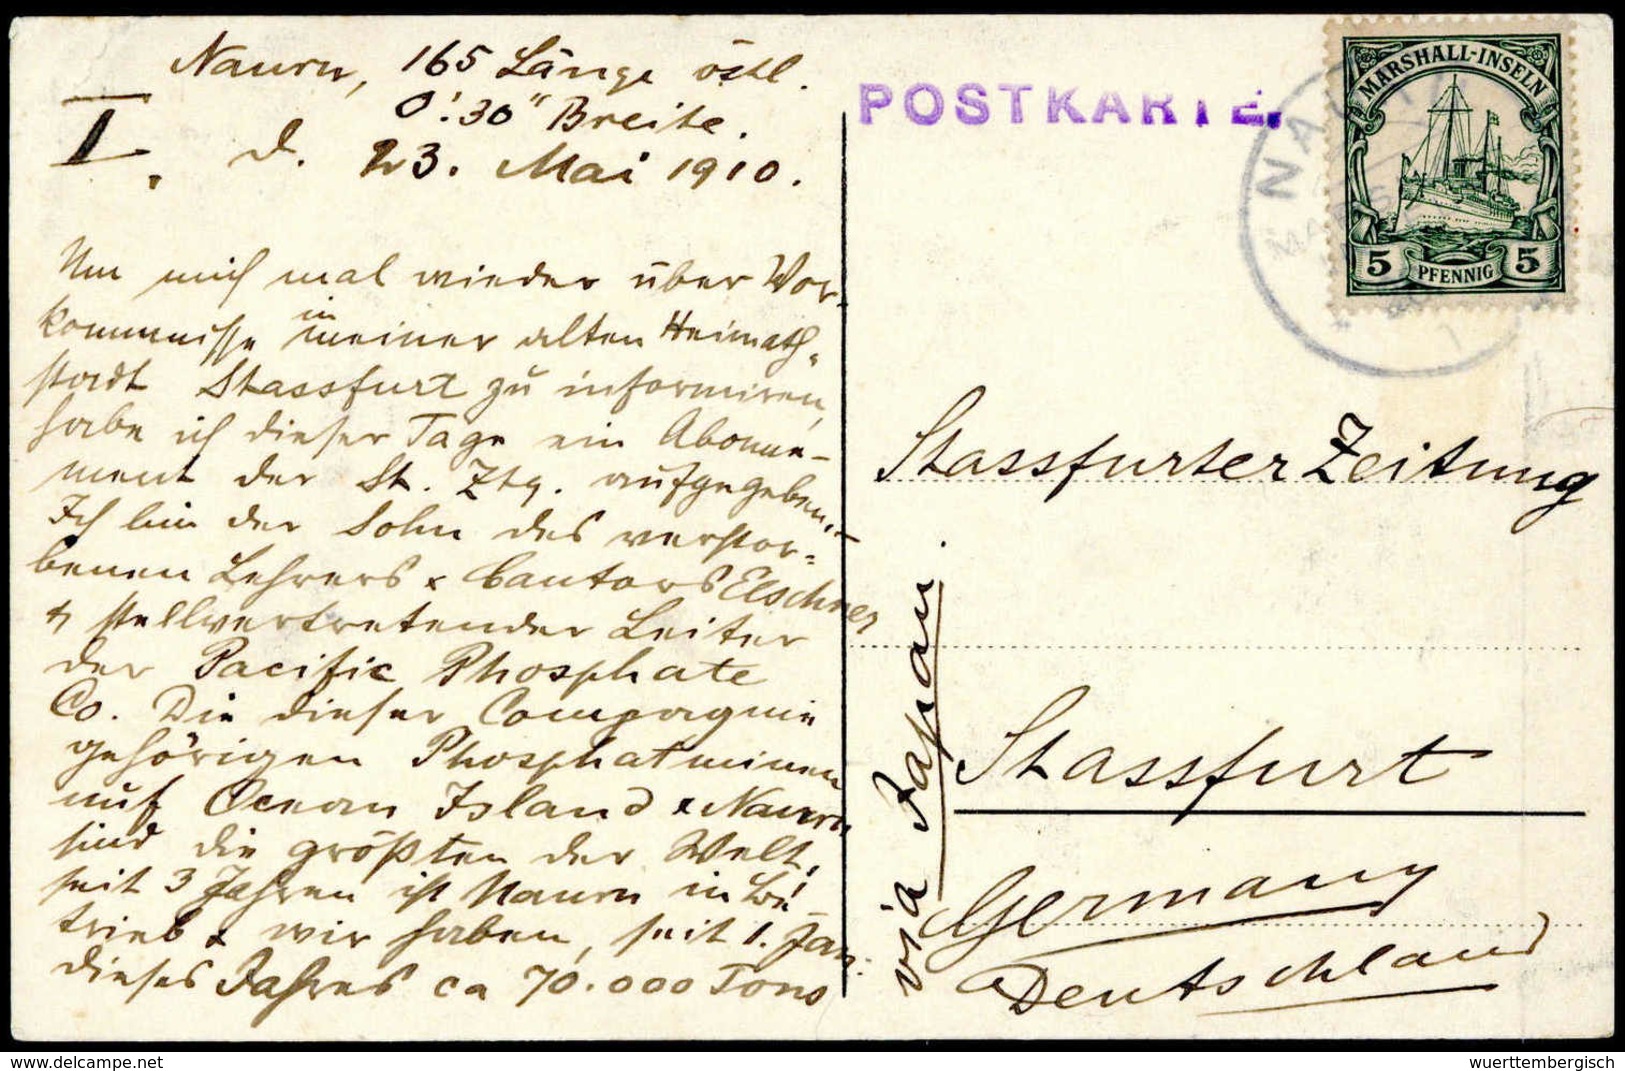 Nauru, 165 Länge östl.
0! 30" Breite.
I. d. 23. Mai 1910.
Um mich mal wieder über Vor-
kommnisse in meiner alten Heimath-
stadt Stassfurt zu informiren,
habe ich dieser Tage ein Abonne-
ment der St. Ztg. aufgegeben.
Ich bin der Sohn des verstor-
benen Lehrers & Cantors Elschner
& stellvertretender Leiter
der Pacific Phosphate
Co. Die dieser Compagnie
gehörigen Phosphatminen
auf Ocean Island & Nauru
sind die größten der Welt,
seit 3 Jahren ist Nauru in Be-
trieb & wir haben, seit 1. Jan.
dieses Jahres ca 70.000 Tons
POSTKARTE.
MARSHALL-INSELN
5 PFENNIG 5
NAURU
Stassfurter Zeitung
Stassfurt
Germany
Deutschland
via Japan.
delcampe.net
wuerttembergisch